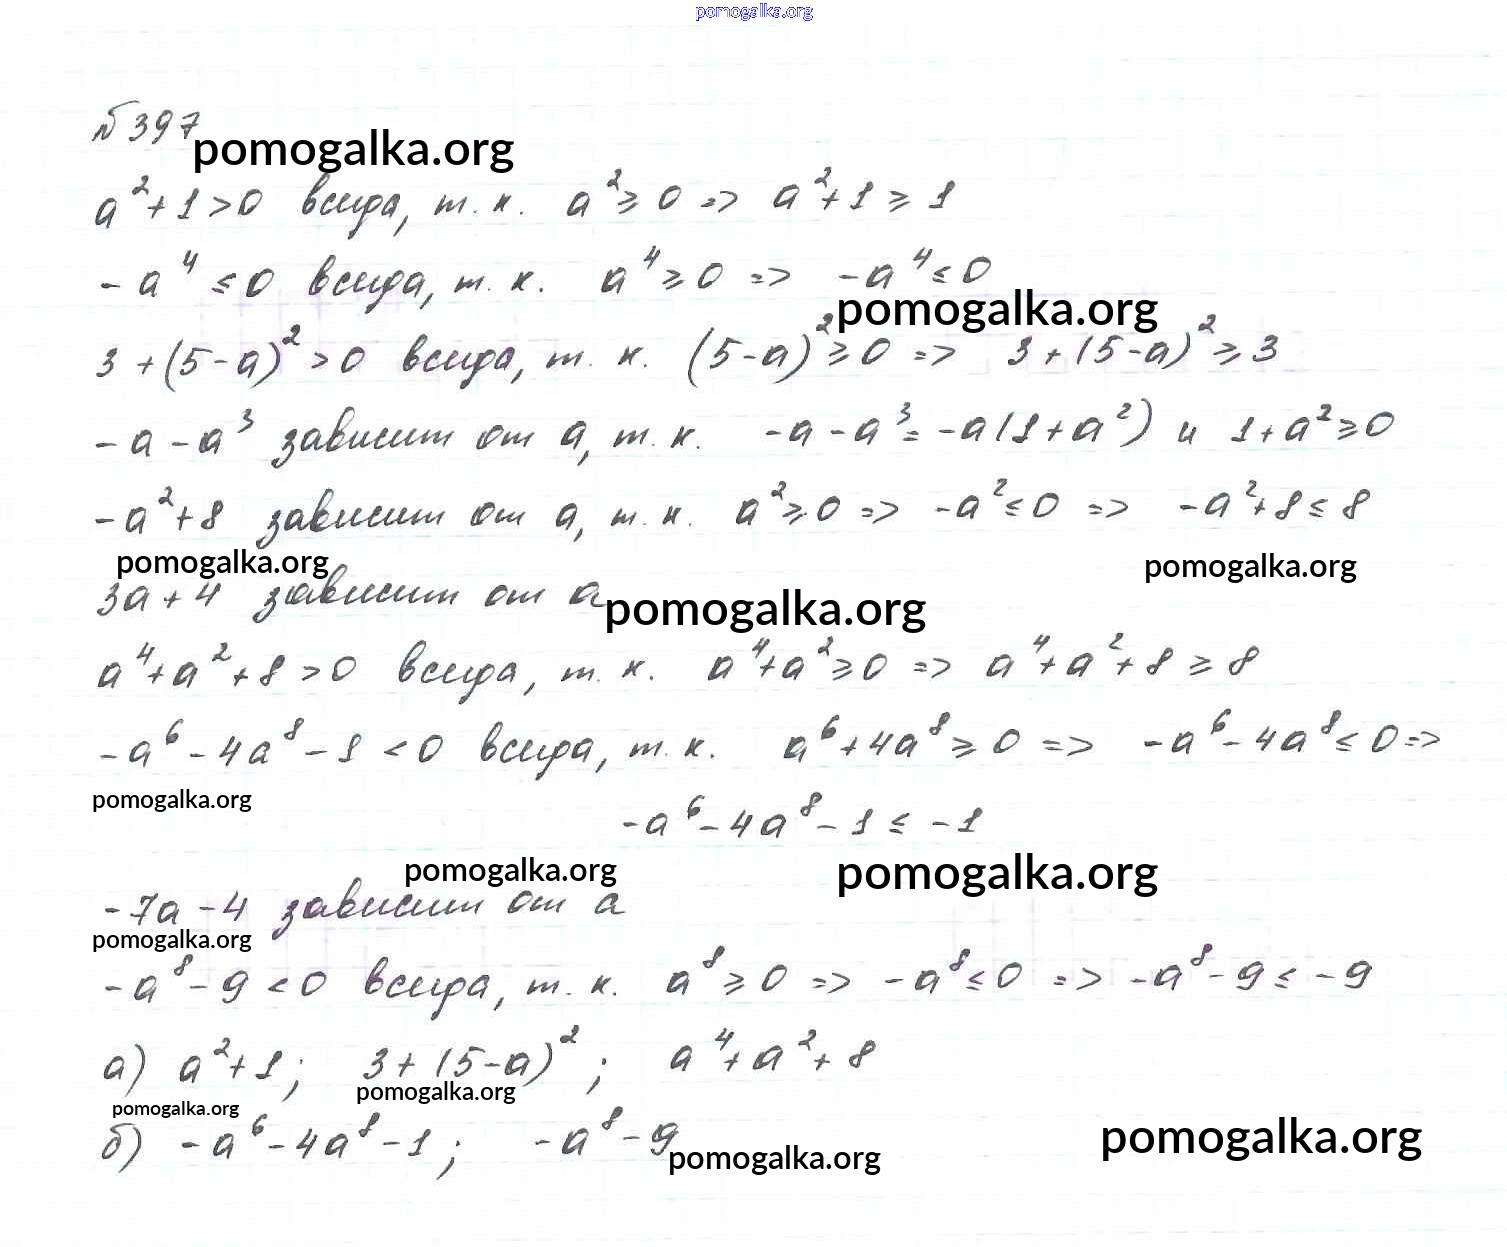 pomogalka.org
№397
pomogalka.org
a²+1>0 всегда, т. к. a²≥0 => a²+1≥1
-a⁴≤0 всегда, т. к. a⁴≥0 => -a⁴≤0
pomogalka.org
3+(5-a)²>0 всегда, т. к. (5-a)²≥0 => 3+(5-a)²≥3
-a-a³ зависит от a, т. к. -a-a³=-a(1+a²) и 1+a²≥0
-a²+8 зависит от a, т. к. a²≥0 => -a²≤0 => -a²+8≤8
pomogalka.org pomogalka.org
3a+4 зависит от a
pomogalka.org
a⁴+a²+8>0 всегда, т. к. a⁴+a²≥0 => a⁴+a²+8≥8
-a⁶-4a⁸-1<0 всегда, т. к. a⁶+4a⁸≥0 => -a⁶-4a⁸≤0 =>
pomogalka.org
-a⁶-4a⁸-1≤-1
pomogalka.org pomogalka.org
-7a-4 зависит от a
pomogalka.org
-a⁸-9<0 всегда, т. к. a⁸≥0 => -a⁸≤0 => -a⁸-9≤-9
а) a²+1; 3+(5-a)²; a⁴+a²+8
pomogalka.org
pomogalka.org
б) -a⁶-4a⁸-1; -a⁸-9
pomogalka.org pomogalka.org